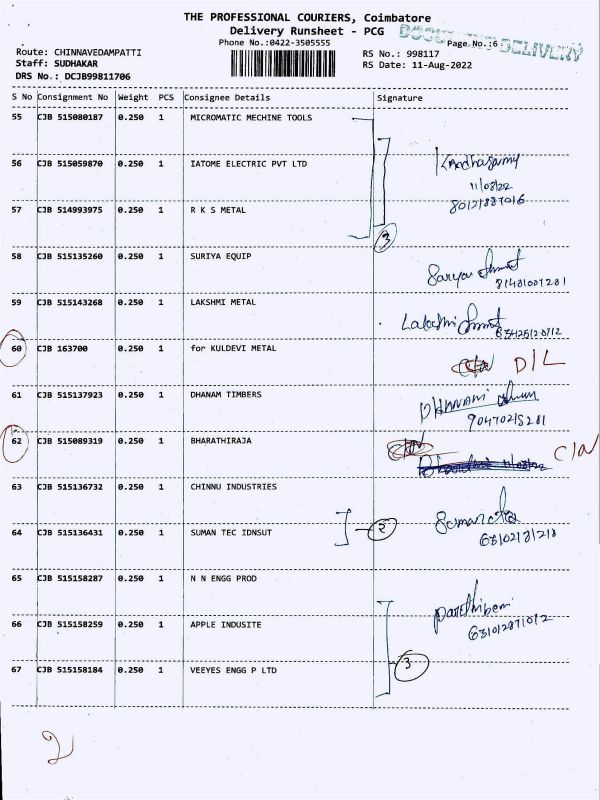 THE PROFESSIONAL COURIERS, Coimbatore
Delivery Runsheet - PCG
DOCUMENT DELIVERY
Phone No.:0422-3505555
Page No.:6
Route: CHINNAVEDAMPATTI
RS No.: 998117
Staff: SUDHAKAR
RS Date: 11-Aug-2022
DRS No.: DCJB99811706
S No Consignment No Weight PCS Consignee Details Signature
55 CJB 515080187 0.250 1 MICROMATIC MECHINE TOOLS
56 CJB 515059870 0.250 1 IATOME ELECTRIC PVT LTD
11/08/22
57 CJB 514993975 0.250 1 R K S METAL
3
58 CJB 515135260 0.250 1 SURIYA EQUIP
59 CJB 515143268 0.250 1 LAKSHMI METAL
60 CJB 163700 0.250 1 for KULDEVI METAL
D/L
61 CJB 515137923 0.250 1 DHANAM TIMBERS
62 CJB 515089319 0.250 1 BHARATHIRAJA
63 CJB 515136732 0.250 1 CHINNU INDUSTRIES
64 CJB 515136431 0.250 1 SUMAN TEC IDNSUT
2
65 CJB 515158287 0.250 1 N N ENGG PROD
66 CJB 515158259 0.250 1 APPLE INDUSITE
67 CJB 515158184 0.250 1 VEEYES ENGG P LTD
3
2